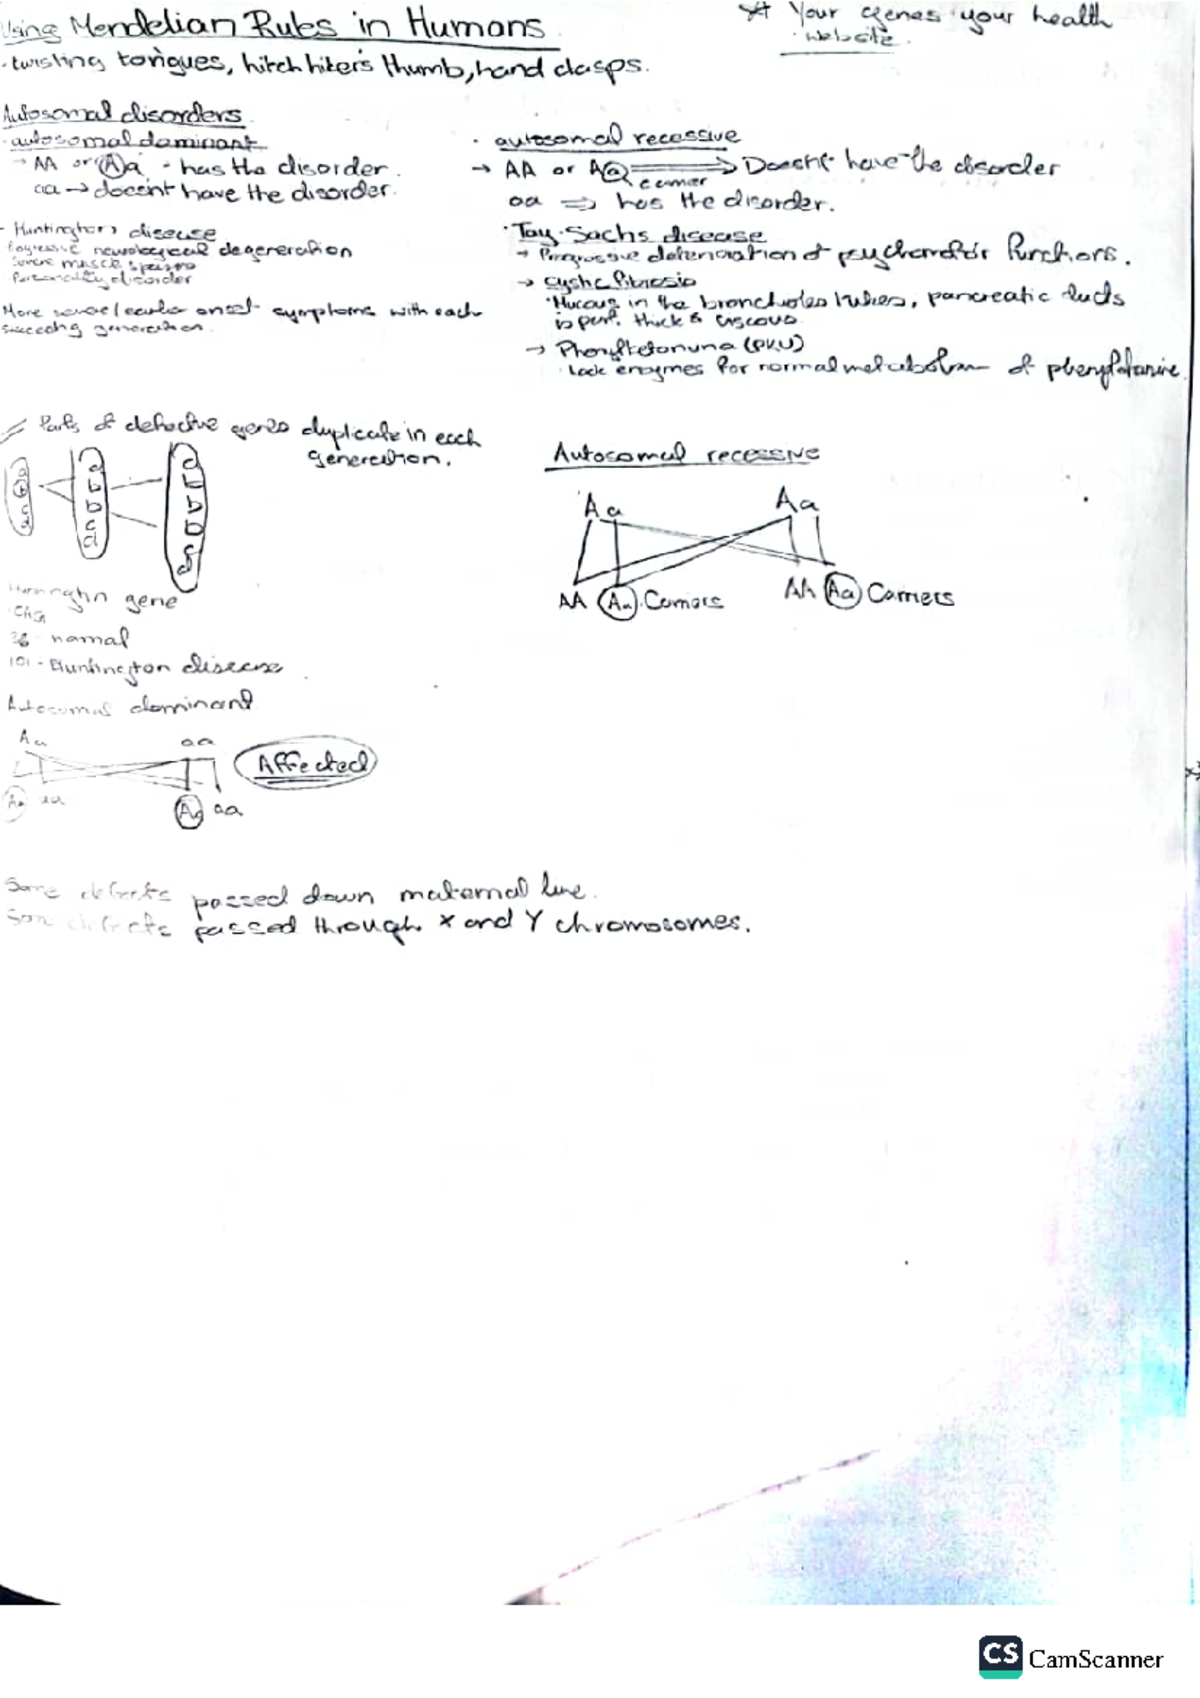 Using Mendelian Rules in Humans
* Your genes your health
· website.
· twisting tongues, hitch hiker's thumb, hand clasps.
Autosomal disorders
· autosomal dominant
→ AA or Aa - has the disorder.
aa → doesn't have the disorder.
- Huntington's disease
Progressive neurological degeneration
Severe muscle spasms
Personality disorder
More severe/earlier onset symptoms with each
succeeding generation.
· autosomal recessive
→ AA or Aa ⟹ Doesn't have the disorder
carrier
aa ⟹ has the disorder.
· Tay-Sachs disease
→ Progressive deterioration of psychomotor functions.
→ cystic fibrosis
· Mucous in the bronchioles tubes, pancreatic ducts
is thick & viscous
→ Phenylketonuria (PKU)
· Lack enzymes for normal metabolism of phenylalanine.
Parts of defective genes duplicate in each
generation.
gene
CAG
normal
101 - Huntington disease
Autosomal dominant
Aa aa
Affected
Aa aa Aa aa
Autosomal recessive
Aa Aa
AA Aa Carriers AA Aa Carriers
Some defects passed down maternal line.
Some defects passed through X and Y chromosomes.
CS CamScanner